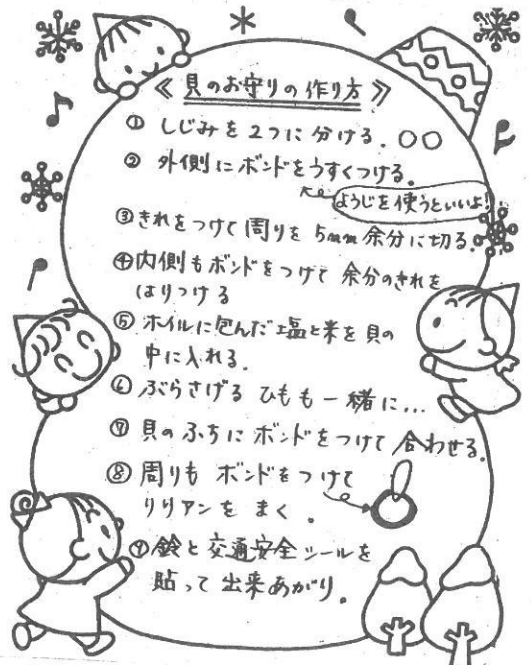 《貝のお守りの作り方》
① しじみを2つに分ける.
② 外側にボンドをうすくつける.
ようじを使うといいよ!
③ きれをつけて周りを5mm余分に切る.
④ 内側もボンドをつけて余分のきれを
はりつける
⑤ ホイルに包んだ塩と米を貝の
中に入れる.
⑥ ぶらさげるひもも一緒に...
⑦ 貝のふちにボンドをつけて合わせる.
⑧ 周りもボンドをつけて
リリアンをまく。
⑨ 鈴と交通安全シールを
貼って出来あがり。